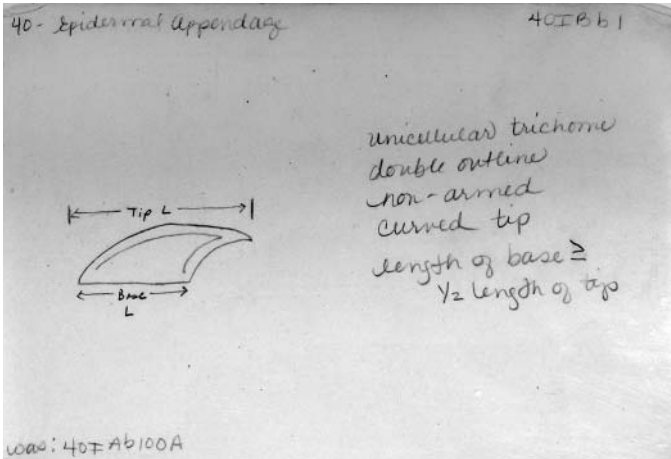 40- Epidermal Appendage
40IBb1
unicellular trichome
double outline
non-armed
curved tip
length of base ≥
1/2 length of tip
Tip L
Base
L
was: 40IAb100A